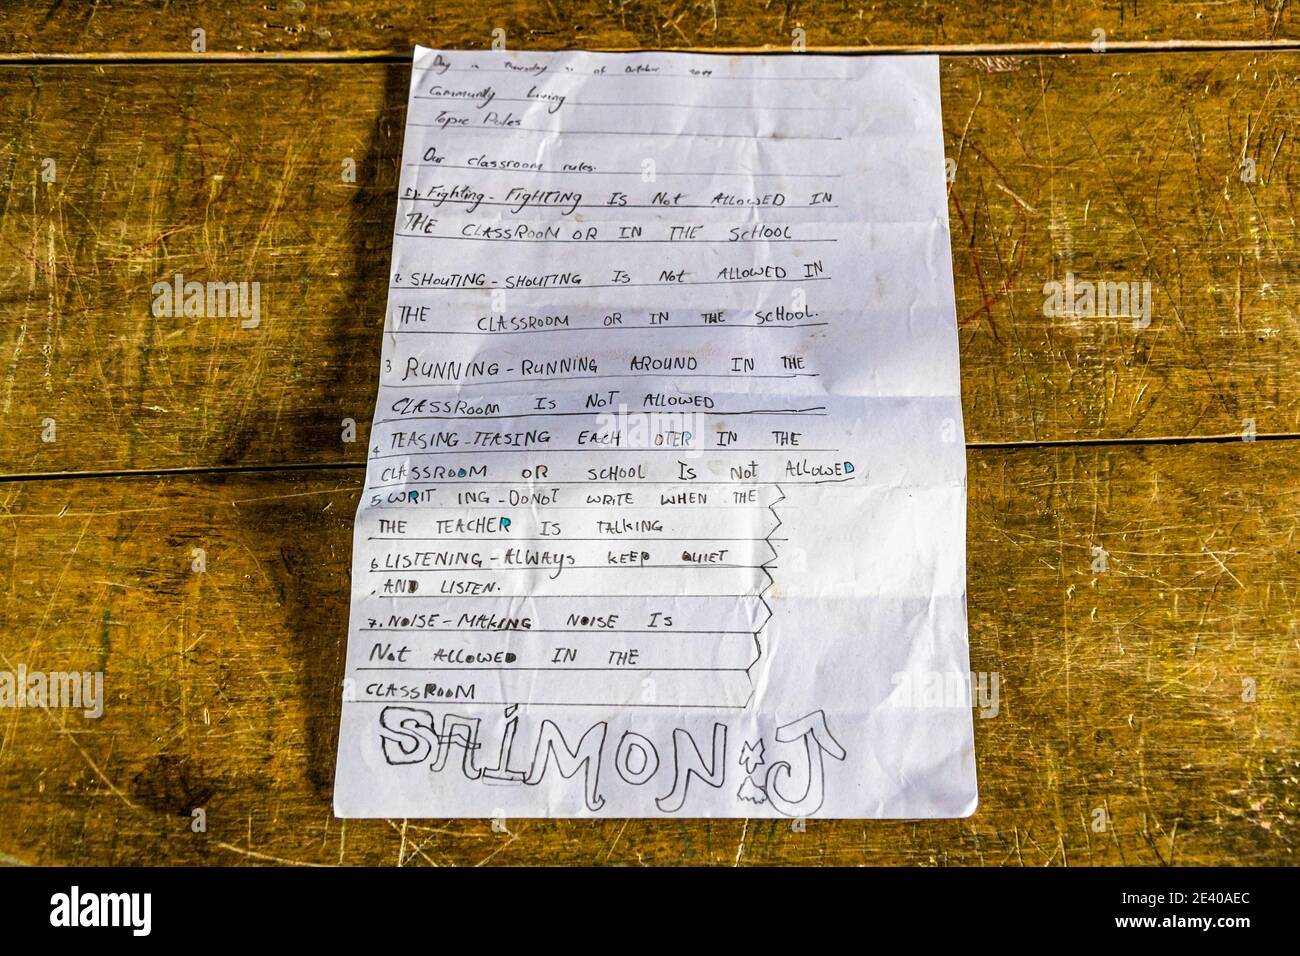 Day is Thursday 31 of October 2019
Community Living
Topic Rules
Our classroom rules.
1). Fighting - FIGHTING IS Not ALLOWED IN
THE CLASSROOM OR IN THE SCHOOL
2. SHOUTING - SHOUTING IS Not ALLOWED IN
THE CLASSROOM OR IN THE SCHOOL.
3 RUNNING - RUNNING AROUND IN THE
CLASSROOM IS NOT ALLOWED
4 TEASING - TEASING EACH OTER IN THE
CLASSROOM OR SCHOOL IS Not ALLOWED
5 WRIT ING - DONOT WRITE WHEN THE
THE TEACHER IS TALKING
6 LISTENING - ALWAYS KEEP QUIET
. AND LISTEN.
7. NOISE - MAKING NOISE IS
Not ALLOWED IN THE
CLASSROOM
SAIMON:J
alamy
Image ID: 2E40AEC
www.alamy.com